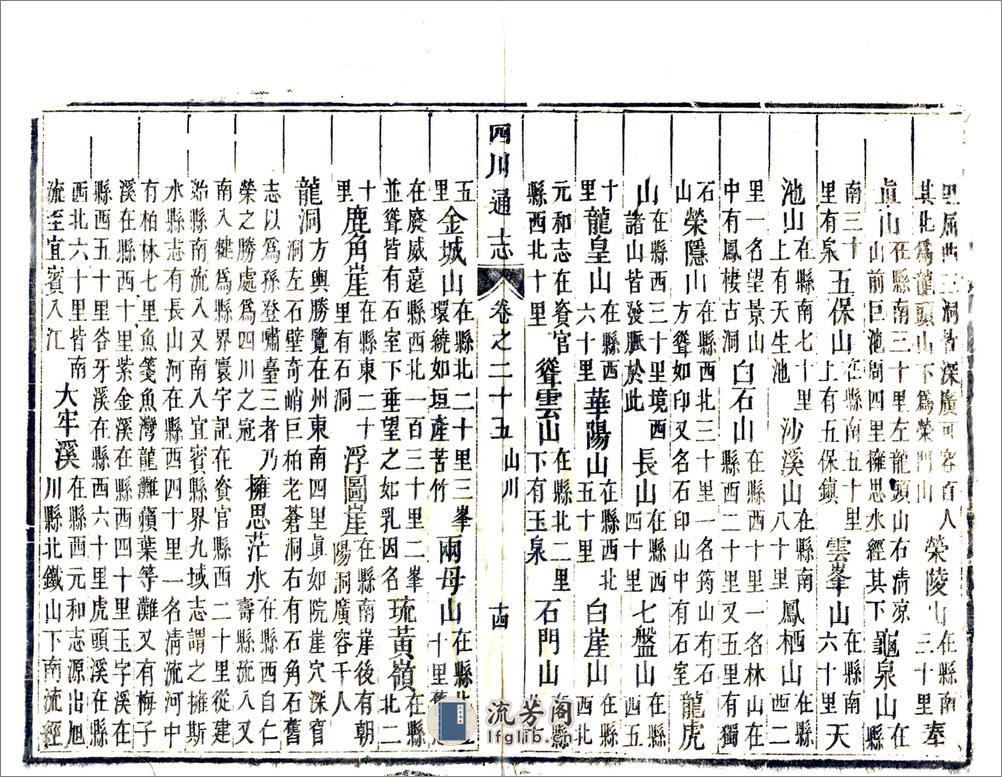 皆深廣可容百人其北為龍頭山下為榮門山 榮陵山在縣南三十里 奉
真山在縣南三十里左龍頭山右清凉山前巨池周四里擁思水經其下 龜泉山在縣
南三十里有泉 五保山在縣南五十里上有五保鎮 雲峯山在縣南六十里 天
池山在縣南七十里上有天生池 沙溪山在縣南八十里 鳳栖山在縣西二
里一名望景山中有鳳棲古洞 白石山在縣西十里一名林山在縣西二十里又五里有獨
石山 榮隱山在縣西北三十里一名筠山有石方聳如印又名石印山中有石室 龍虎
山在縣西三十里境西諸山皆發脈於此 長山在縣西四十里 七盤山在縣西五
十里 龍皇山在縣西六十里 華陽山在縣西北五十里 白崖山在縣西北
元和志在資官縣西北十里 聳雲山在縣北二里下有玉泉 石門山在縣
四川通志 卷之二十五 山川 十四
五里 金城山在縣北二十里三峯環繞如垣產苦竹 兩母山在縣北十里舊
在廢威遠縣西北一百三十里二峯並聳皆有石室下垂望之如乳因名 琉黃嶺在縣北二
十里 鹿角崖在縣東二十里有石洞 浮圖崖在縣南崖後有朝陽洞廣容千人
龍洞方輿勝覽在州東南四里真如院崖穴深窅洞左石壁奇峭巨柏老蒼洞右有石角石舊
志以為孫登嘯臺三者乃榮之勝處為四川之冠 擁思茫水在縣西自仁壽縣流入又
南入犍為縣寰宇記在資官縣西二十里從建始縣南流入又南入宜賓縣界九域志謂之擁斯
水縣志有長山河在縣西四十里一名清流河中有柏林七里魚箋魚灣龍灘蘋葉等灘又有梅子
溪在縣西十里紫金溪在縣西四十里玉字溪在縣西五十里咨牙溪在縣西六十里虎頭溪在縣
西北六十里皆南流至宜賓入江 大牢溪在縣西元和志源出旭川縣北鐵山下南流經
流芳阁
lfglib.com